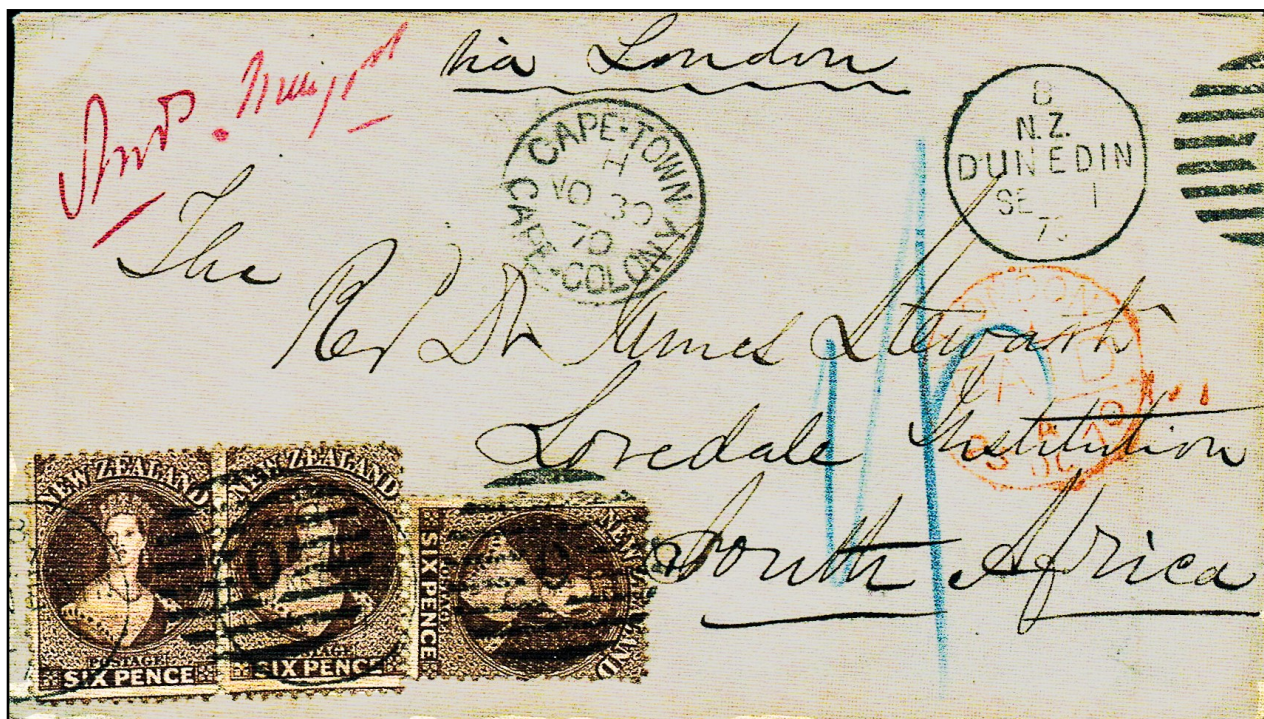 via London
CAPE-TOWN
H
NO 30
70
CAPE-COLONY
B
N.Z.
DUNEDIN
SE 1
7
The
Rev Dr James Stewart
Lovedale Institution
South Africa
LONDON
PAID
70
NEW ZEALAND
POSTAGE
SIX PENCE
NEW ZEALAND
POSTAGE
SIX PENCE
NEW ZEALAND
POSTAGE
SIX PENCE